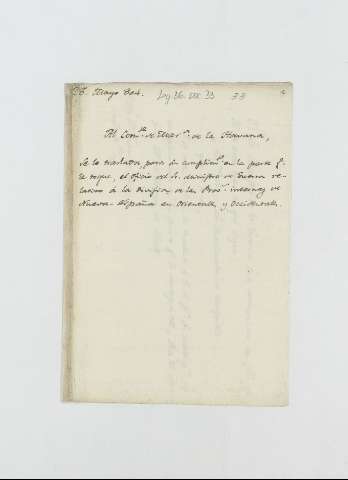 26. Mayo 804. Leg 26. Doc 33 33
Al Com.te de Mar.a de la Havana,
Se le traslada, para su cumplim.to en la parte q.e
le toque, el oficio del Sr. ministro de Guerra re-
lativo á la division de las Prov.s internas de
Nueva España en Orientales y Occidentales.